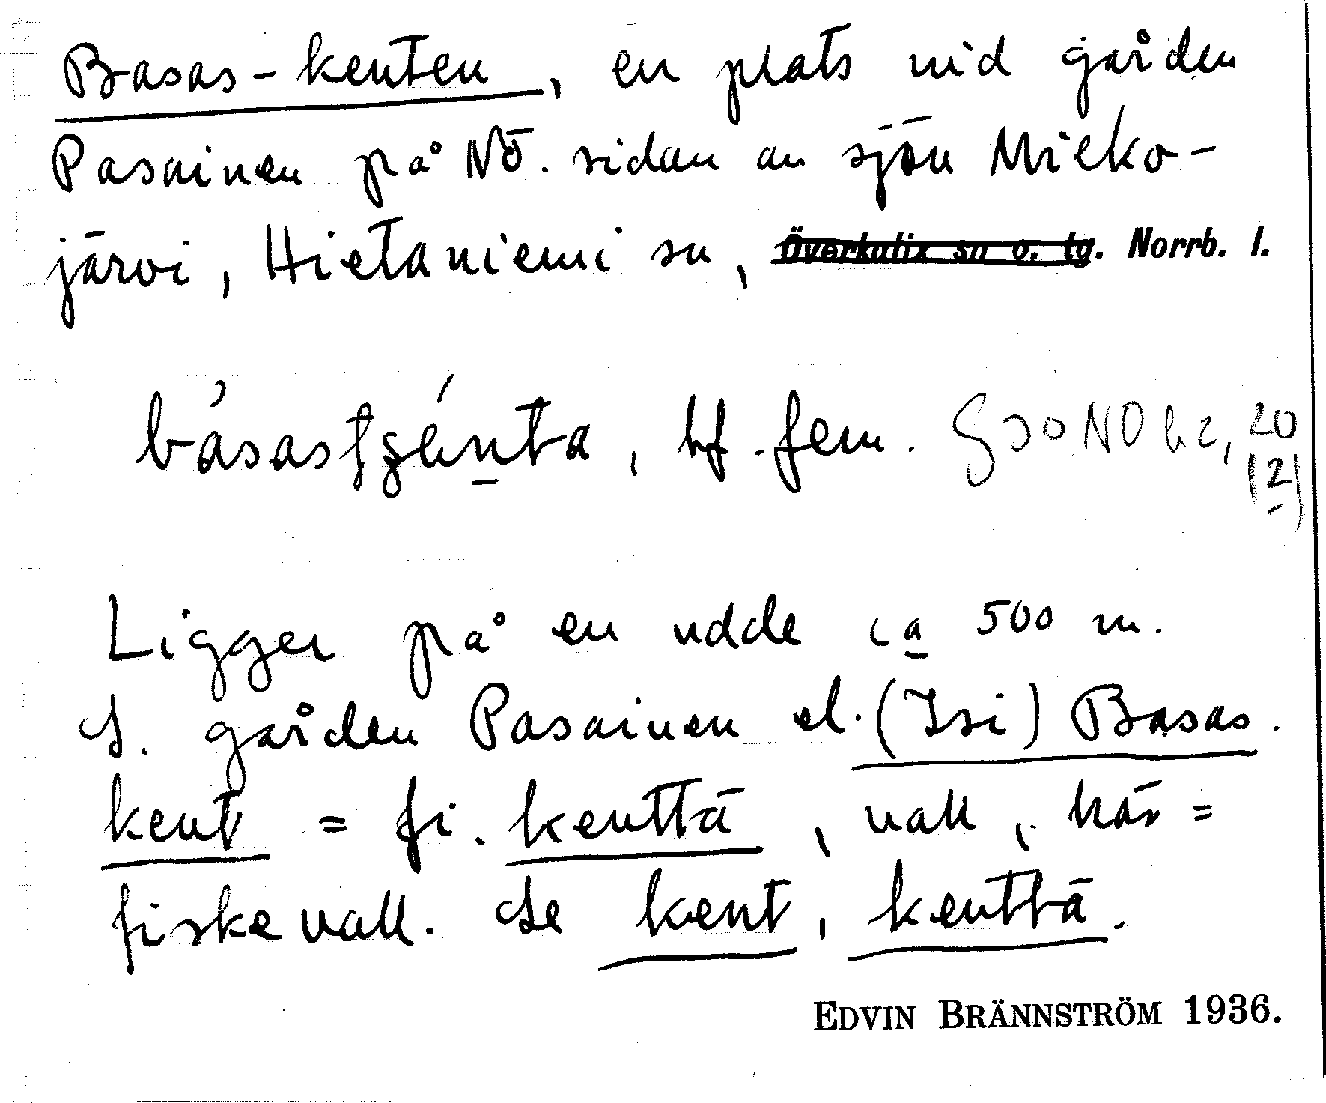 Basas-kenten, en plats vid gården
Pasainen på NÖ. sidan av sjön Mieko-
järvi, Hietaniemi sn, Överkalix sn o. tg. Norrb. l.
bf. fem.
20
(2)
Ligger på en udde ca 500 m.
S. gården Pasainen el. (Isi) Basas.
kent = fi. kenttä, vall, här =
fiskevall. Se kent, kenttä.
EDVIN BRÄNNSTRÖM 1936.